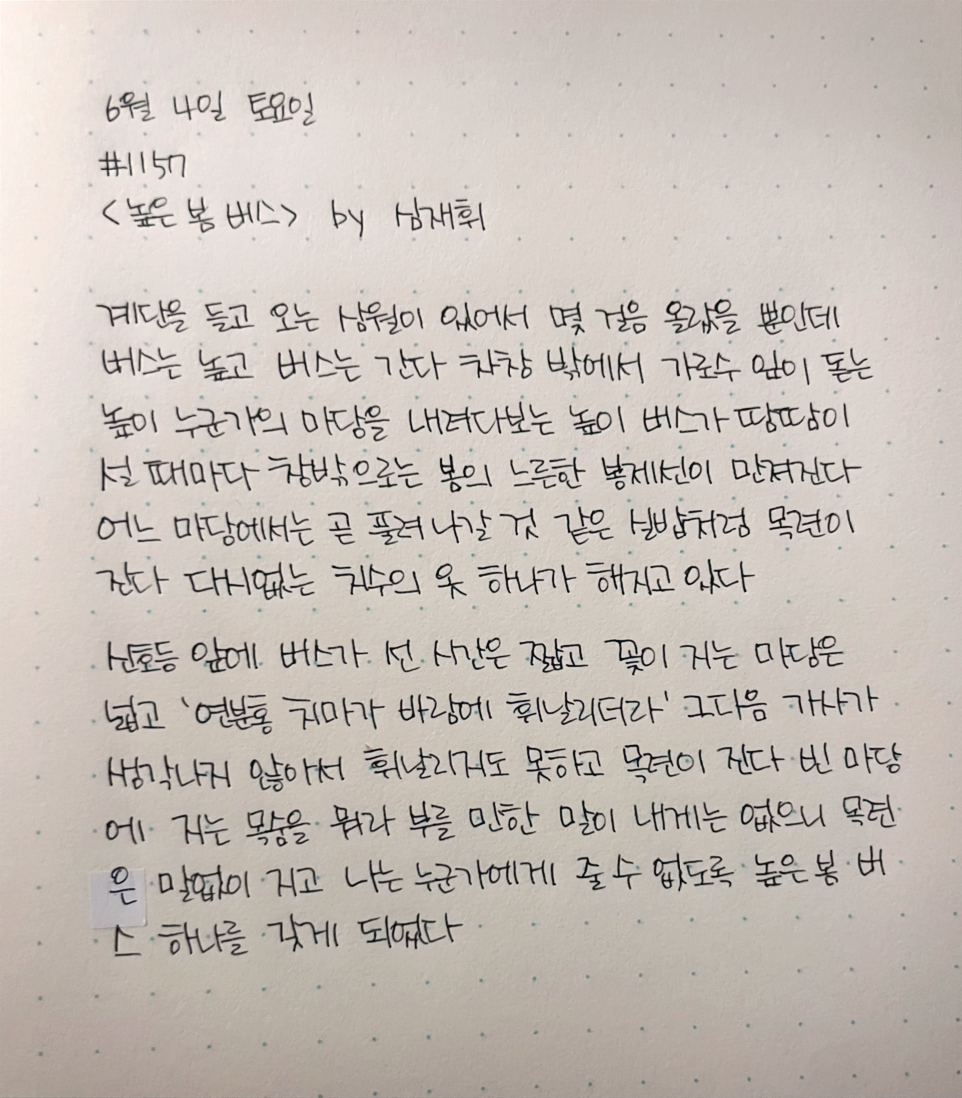 6월 4일 토요일
#1157
<높은 봄 버스> by 심재휘
계단을 들고 오는 삼월이 있어서 몇 걸음 올랐을 뿐인데
버스는 높고 버스는 간다 차창 밖에서 가로수 잎이 돋는
높이 누군가의 마당을 내려다보는 높이 버스가 땀땀이
설 때마다 창밖으로는 봄의 느른한 봉제선이 만져진다
어느 마당에서는 곧 풀려나갈 것 같은 실밥처럼 목련이
진다 다시없는 치수의 옷 하나가 해지고 있다
신호등 앞에 버스가 선 시간은 짧고 꽃이 지는 마당은
넓고 '연분홍 치마가 바람에 휘날리더라' 그다음 가사가
생각나지 않아서 휘날리지도 못하고 목련이 진다 빈 마당
에 지는 목숨을 뭐라 부를 만한 말이 내게는 없으니 목련
은 말없이 지고 나는 누군가에게 줄 수 없도록 높은 봄 버
스 하나를 갖게 되었다